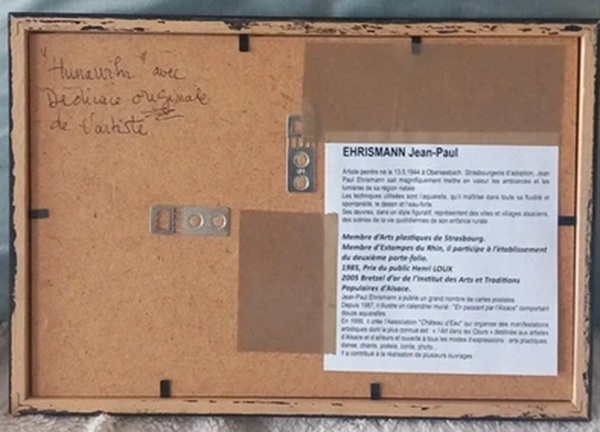 "Hunawihr" avec
Dédicace originale
de l'artiste
EHRISMANN Jean-Paul
Artiste peintre né le 13.5.1944 à Oberseebach. Strasbourgeois d'adoption, Jean
Paul Ehrismann sait magnifiquement mettre en valeur les ambiances et les
lumières de sa région natale.
Les techniques utilisées sont l'aquarelle, qu'il maîtrise dans toute sa fluidité et
spontanéité, le dessin et l'eau-forte.
Ses œuvres, dans un style figuratif, représentent des villes et villages alsaciens,
des scènes de la vie quotidiennes de son enfance rurale.
Membre d'Arts plastiques de Strasbourg.
Membre d'Estampes du Rhin, il participe à l'établissement
du deuxième porte-folio.
1985, Prix du public Henri LOUX
2005 Bretzel d'or de l'Institut des Arts et Traditions
Populaires d'Alsace.
Jean-Paul Ehrismann a publié un grand nombre de cartes postales.
Depuis 1987, il illustre un calendrier mural : "En passant par l'Alsace" comportant
douze aquarelles
En 1986, il crée l'Association "Château d'Eau" qui organise des manifestations
artistiques dont la plus connue est : « l'Art dans les Cours » destinée aux artistes
d'Alsace et d'ailleurs et ouverte à tous les modes d'expressions : arts plastiques,
danse, chants, poésie, conte, photo...
Il a contribué à la réalisation de plusieurs ouvrages